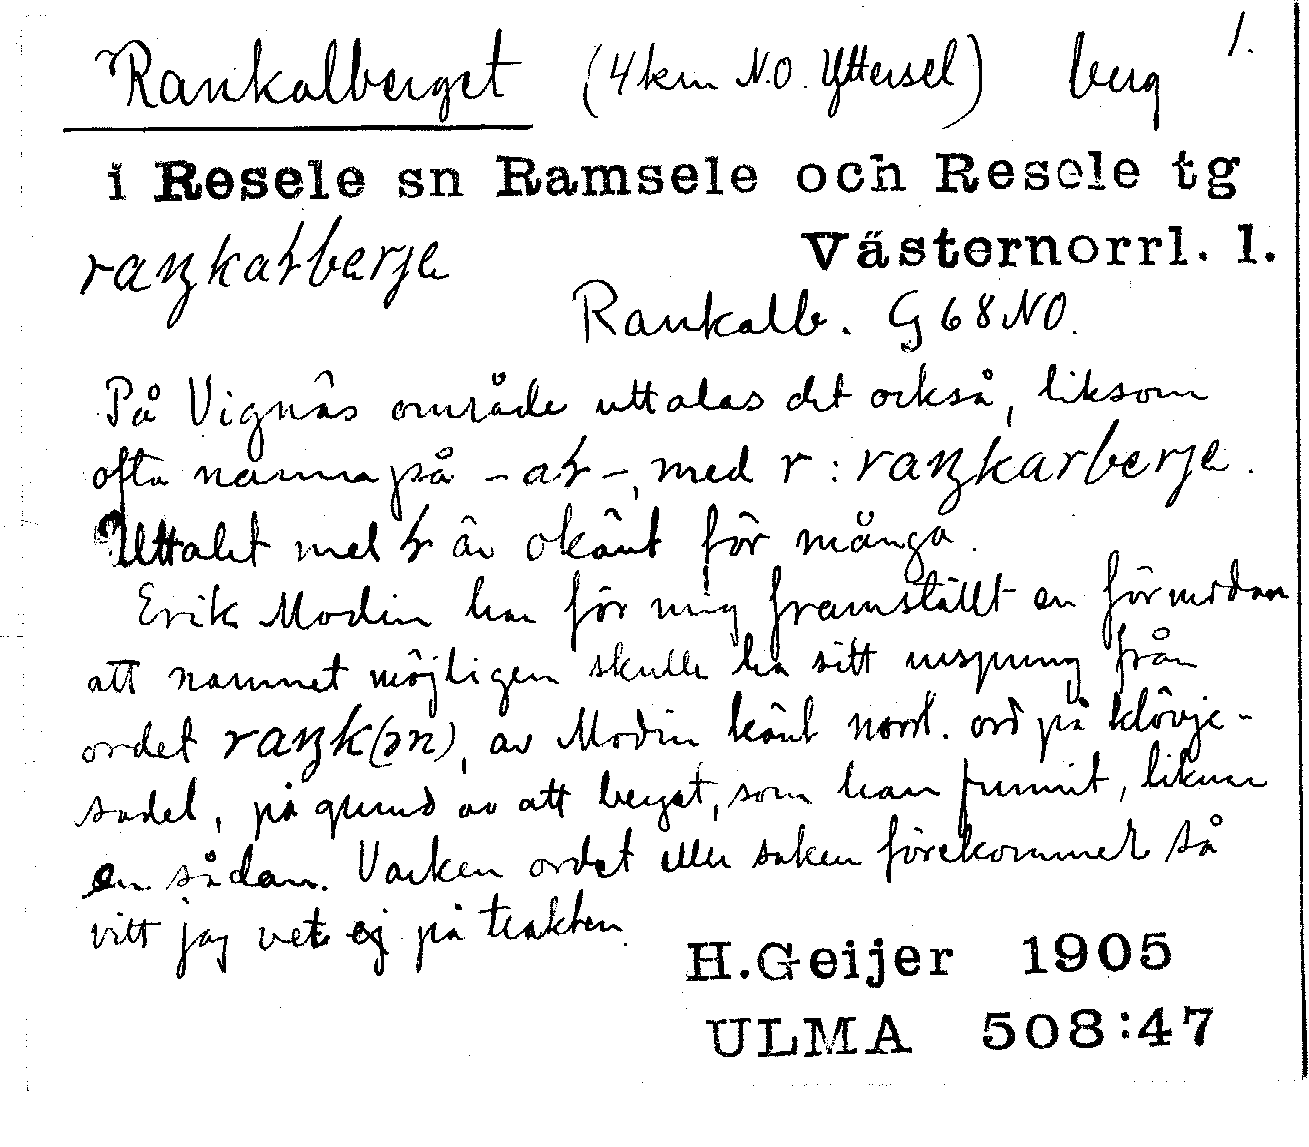 Rankalberget (4 km N.O. Yttersel) berg 1.
i Resele sn Ramsele och Resele tg
raŋkaɬberje Västernorrl. l.
Rankalb. G 68 NO.
På Vignäs område uttalas det också, liksom
ofta namn på -aɬ-, med r: raŋkarberje.
Uttalet med ɬ är okänt för många.
Erik Modin har för mig framställt en förmodan
att namnet möjligen skulle ha sitt ursprung från
ordet raŋk(ɷn), av Modin känt norrl. ord på klövje-
sadel, på grund av att berget, som han funnit, liknar
en sådan. Varken ordet eller saken förekommer så
vitt jag vet ej på trakten.
H.Geijer 1905
ULMA 508:47